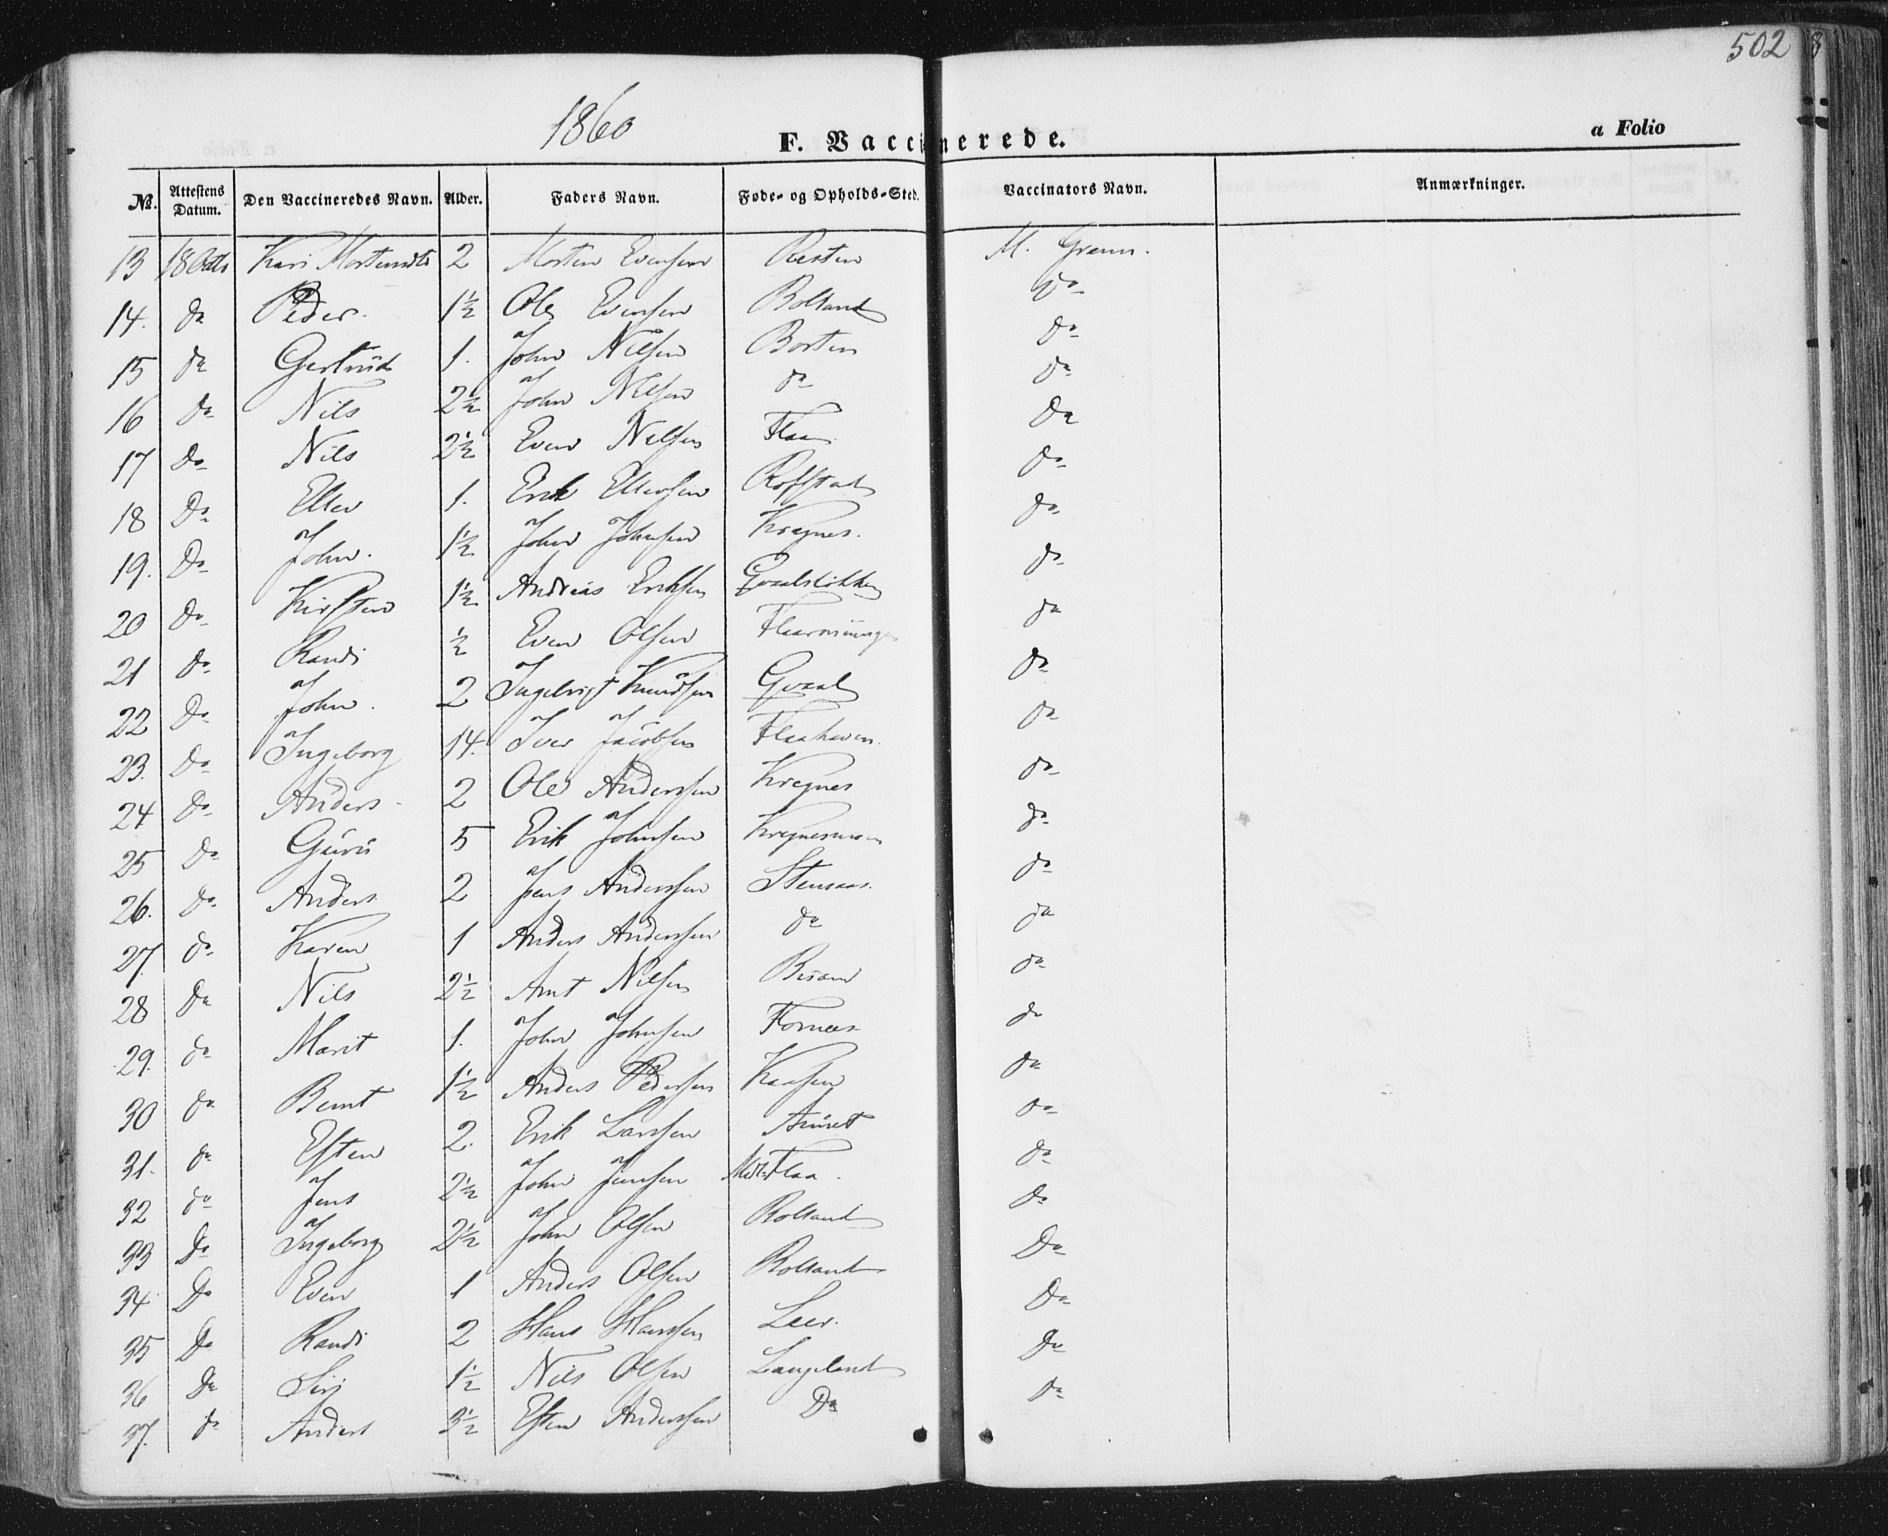 502
1860
F. Vaccinerede.
a Folio
No. Attestens Datum. Den Vaccineredes Navn. Alder. Faders Navn. Føde- og Opholds-Sted. Vaccinators Navn. Anmærkninger.
13 Kari Mortensdtr 2 Morten Evensen M. Gram.
14. do Peder. 1½ Ole Evensen Rolland do
15 do Gertrud 1. John Nilsen Borten do
16 do Nils 2½ John Nilsen do do
17 Do Nils 2½ Even Nilsen Flaa Do
18 Do Ellev 1. Erik Ellevsen Rofstad do
19. Do John. 1½ John Johnsen Kregnes. do
20 Do Kirsten 1½ Andreas Eriksen do
21 Do Randi ½ Even Olsen do
22 Do John. 2 Ingebrigt Knudsen Gvaal do
23. Do Ingeborg 14. Iver Jacobsen Flaahaven. do
24 Do Anders 2 Ole Anderssen Kregnes do
25 Do Guru 5 Erik Johnsen Kregnesmoen do
26. Do Anders 2 Jens Anderssen Stensaas. do
27. do Karen 1 Anders Anderssen do do
28 Do Nils 2½ Arnt Nilsen do
29. do Marit 1. John Johnsen Fornees do
30 do Bernt 1½ Anders Pedersen Kaasen do
31. do Esten 2. Erik Larssen Aunet do
32 do Jens 2½ John Jensen Flaa. do
33 Do Ingeborg 2½ John Olsen Rolland do
34 Do Even 1 Anders Olsen Rolland Do
35 Do Randi 2 Hans Hanssen Leer. Do
36 Do Siri 1½ Nils Olsen Langeland Do
37. do Anders 3½ Esten Anderssen Do do